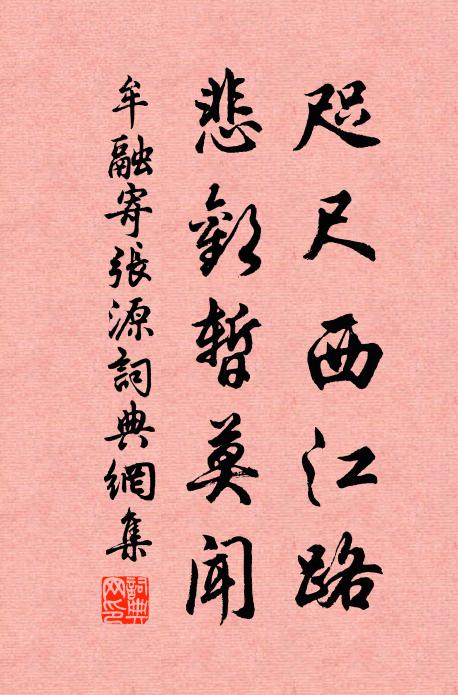 咫尺西江路
悲歡暫莫聞
牟融寄張源詞典網集
詞典网印